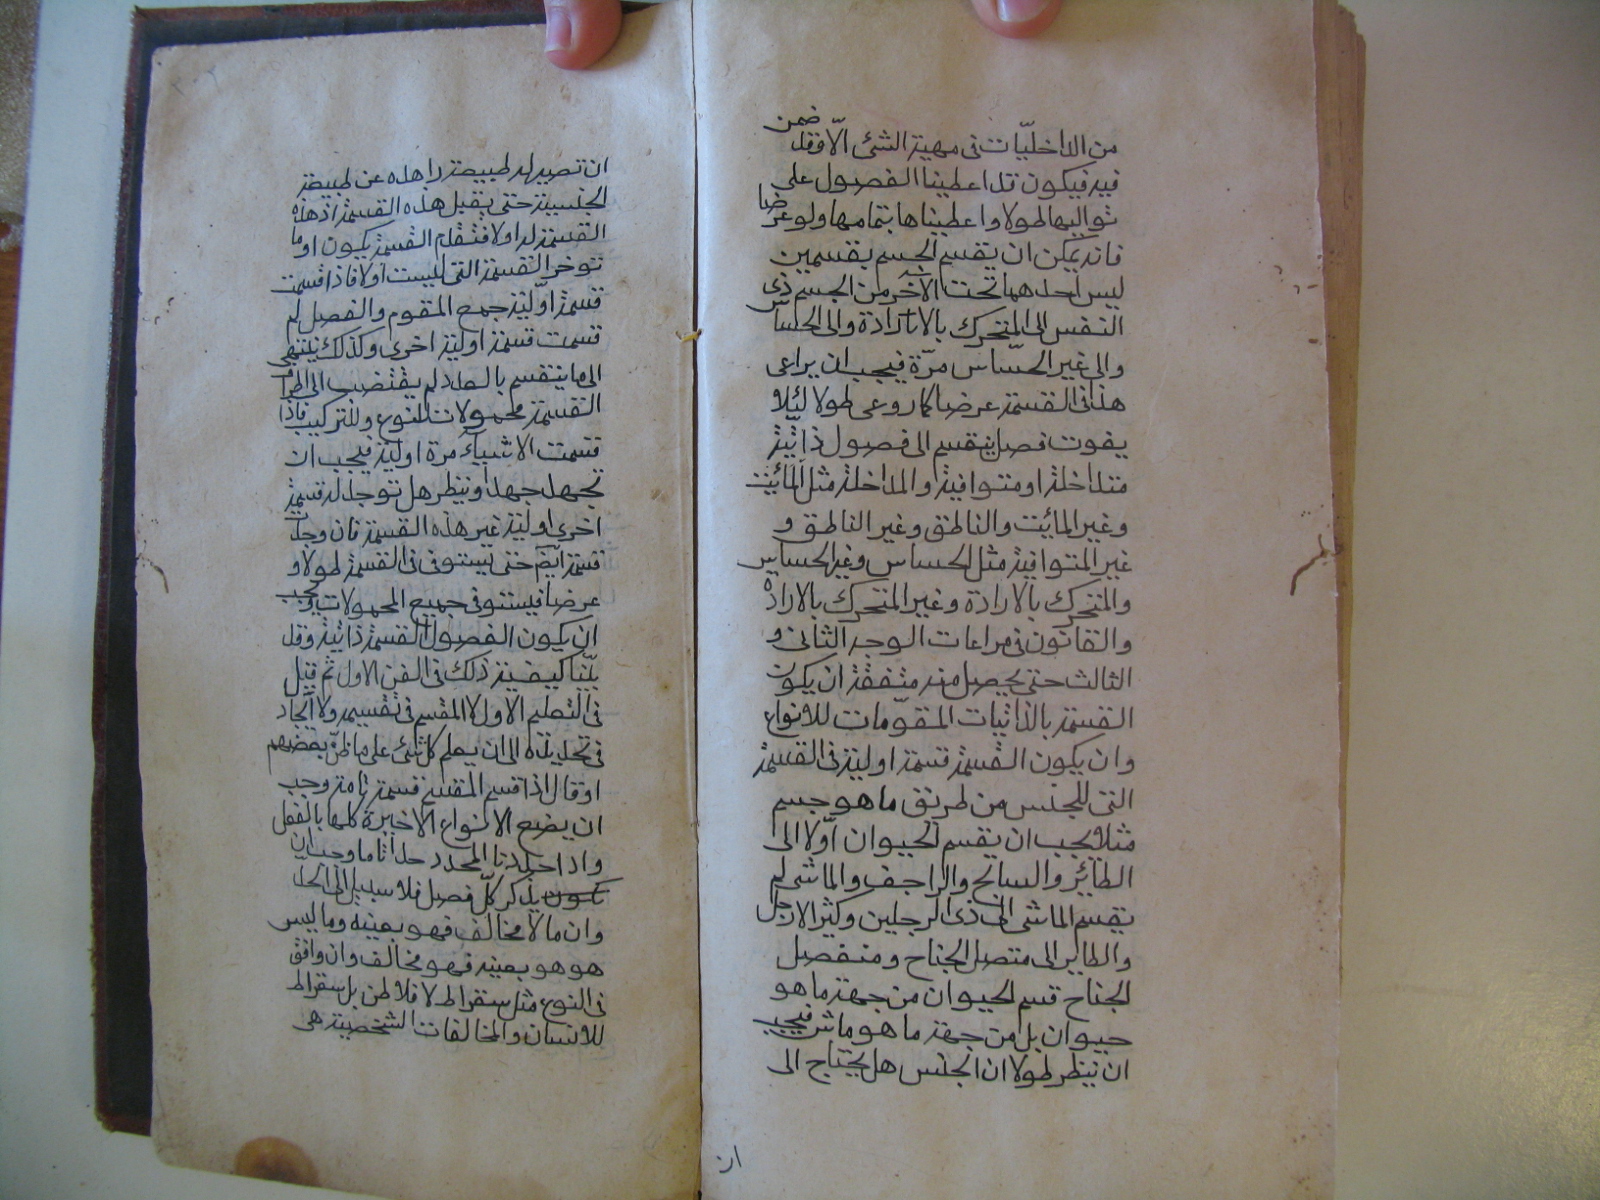 من الداخليّات فى مهية الشئ الّا وقد ضمن
فيه فيكون قد اعطينا الفصول على
تواليها طولا واعطيناها بتمامها ولو عرضا
فانه يمكن ان يقسم الجسم بقسمين
ليس احدهما تحت الآخر من الجسم ذى
النفس الى المتحرك بالارادة والى الحساس
والى غير الحسّاس مرّة فيجب ان يراعى
هذا فى القسمة عرضا كما روعى طولا لئلا
يفوت فصل ينقسم الى فصول ذاتية
متداخلة او متوافية والمداخلة مثل المائيت
وغير المائيت والناطق وغير الناطق و
غير المتوافية مثل الحساس وغير الحساس
والمتحرك بالارادة وغير المتحرك بالارادة
والقانون فى مراعات الوجه الثانى و
الثالث حتى يحصل منه متفقة ان يكون
القسمة بالذاتيات المقوّمات للانواع
وان يكون القسمة قسمة اولية فى القسمة
التى للجنس من طريق ما هو جسم
مثلا يجب ان يقسم الحيوان اوّلا الى
الطائر والسابح والزاحف والماشى لم
يقسم الماشى الى ذى الرجلين وكثير الارجل
والطاير الى متصل الجناح ومنفصل
الجناح قسم الحيوان من جهة ما هو
حيوان بل من جهة ما هو ماش فيجب
ان ينظر طولا ان الجنس هل يحتاج الى
ان
ان تصير له طبيعة زاهده عن طبيعة
الجنسية حتى يقبل هذه القسمة اذ هذه
القسمة له اولا فتقدم القسمة يكون او ما
توخر القسمة التى ليست اولا فاذا قسمت
قسمة اوّلية جمع المقوم والفصل لم
قسمت قسمة اولية اخرى وكذلك ينتهى
الى ما ينقسم بالعدد لم يقتضب الى اطراف
القسمة محمولات للنوع وللتركيب فاذا
قسمت الاشياء مرة اولية فيجب ان
تجهد جهدا وينظر هل توجد له قسمة
اخرى اولية غير هذه القسمة فان وجدت
قسمة ايضا حتى يستوفى فى القسمة طولا و
عرضا فيستوفى جميع المحمولات ويجب
ان يكون الفصول القسمة ذاتية وقد
بيّنا كيفية ذلك فى الفن الاول ثم قيل
فى التعليم الاول لا المقسم فى تقسيمه ولا الحاد
فى تحديده الى ان يعلم كل شئ على ما ظنّ بعضهم
او قال اذا قسم المقسم قسمة تامة وجب
ان يضع الانواع الاخيرة كلها بالفعل
واذا حدد المحدد حدا تاما وجب ان
يكون يذكر كلّ فصل فلا سبيل الى الحد
وان ما لا مخالف فهو بعينه وما ليس
هو هو بعينه فهو مخالف وان وافق
فى النوع مثل سقراط لافلاطن بل سقراط
للانسان والمخالفات الشخصية هى